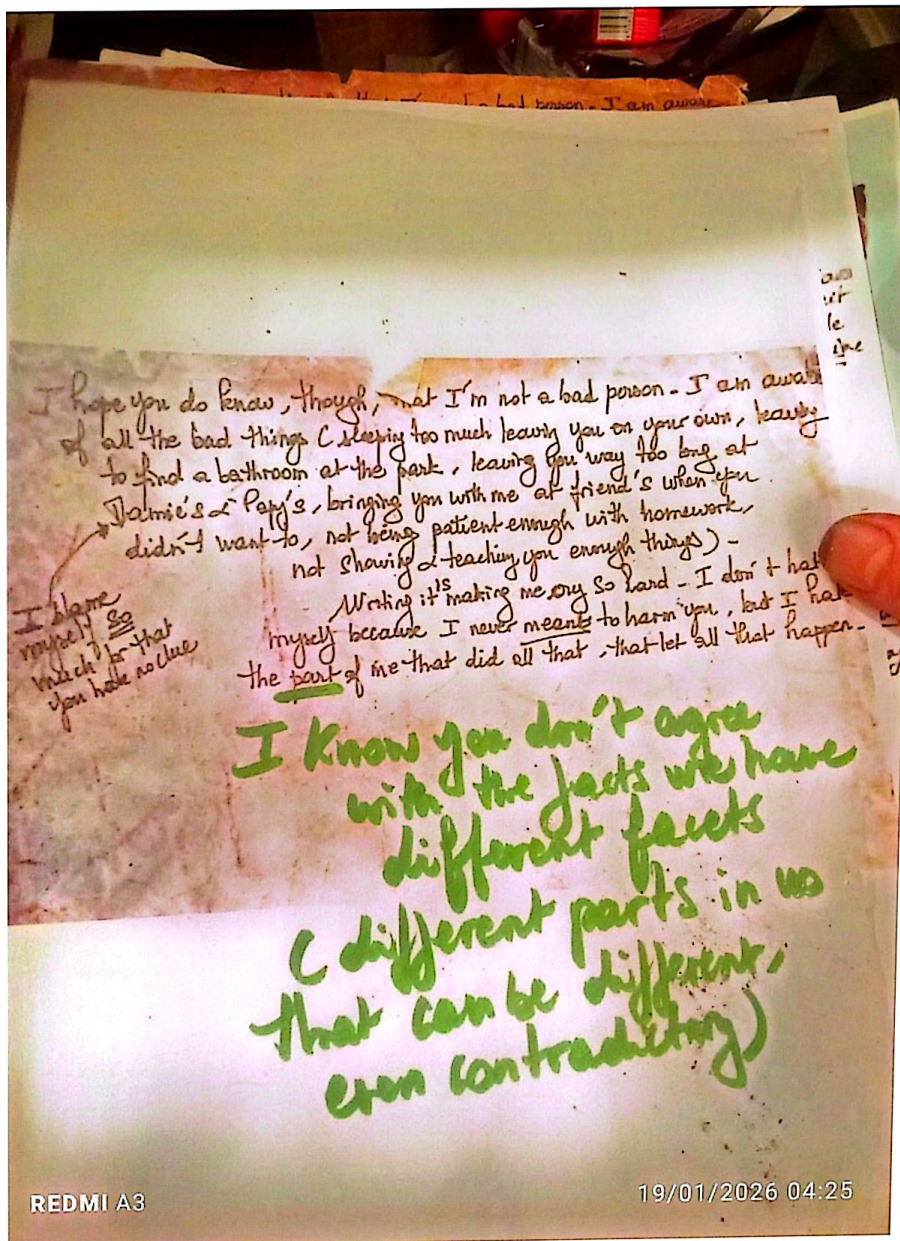 bad person - I am aware
I hope you do know, though, that I'm not a bad person - I am aware
of all the bad things ( sleeping too much leaving you on your own, leaving
to find a bathroom at the park, leaving you way too long at
Mamie's & Papy's, bringing you with me at friend's when you
didn't want to, not being patient enough with homework,
not showing & teaching you enough things) -
Writing it is making me cry so hard - I don't hate
myself because I never meant to harm you, but I hate
the part of me that did all that, that let all that happen -
I blame
myself so
much for that
you have no clue
I know you don't agree
with the facts we have
different facets
( different parts in us
that can be different,
even contradictory)
REDMI A3
19/01/2026 04:25